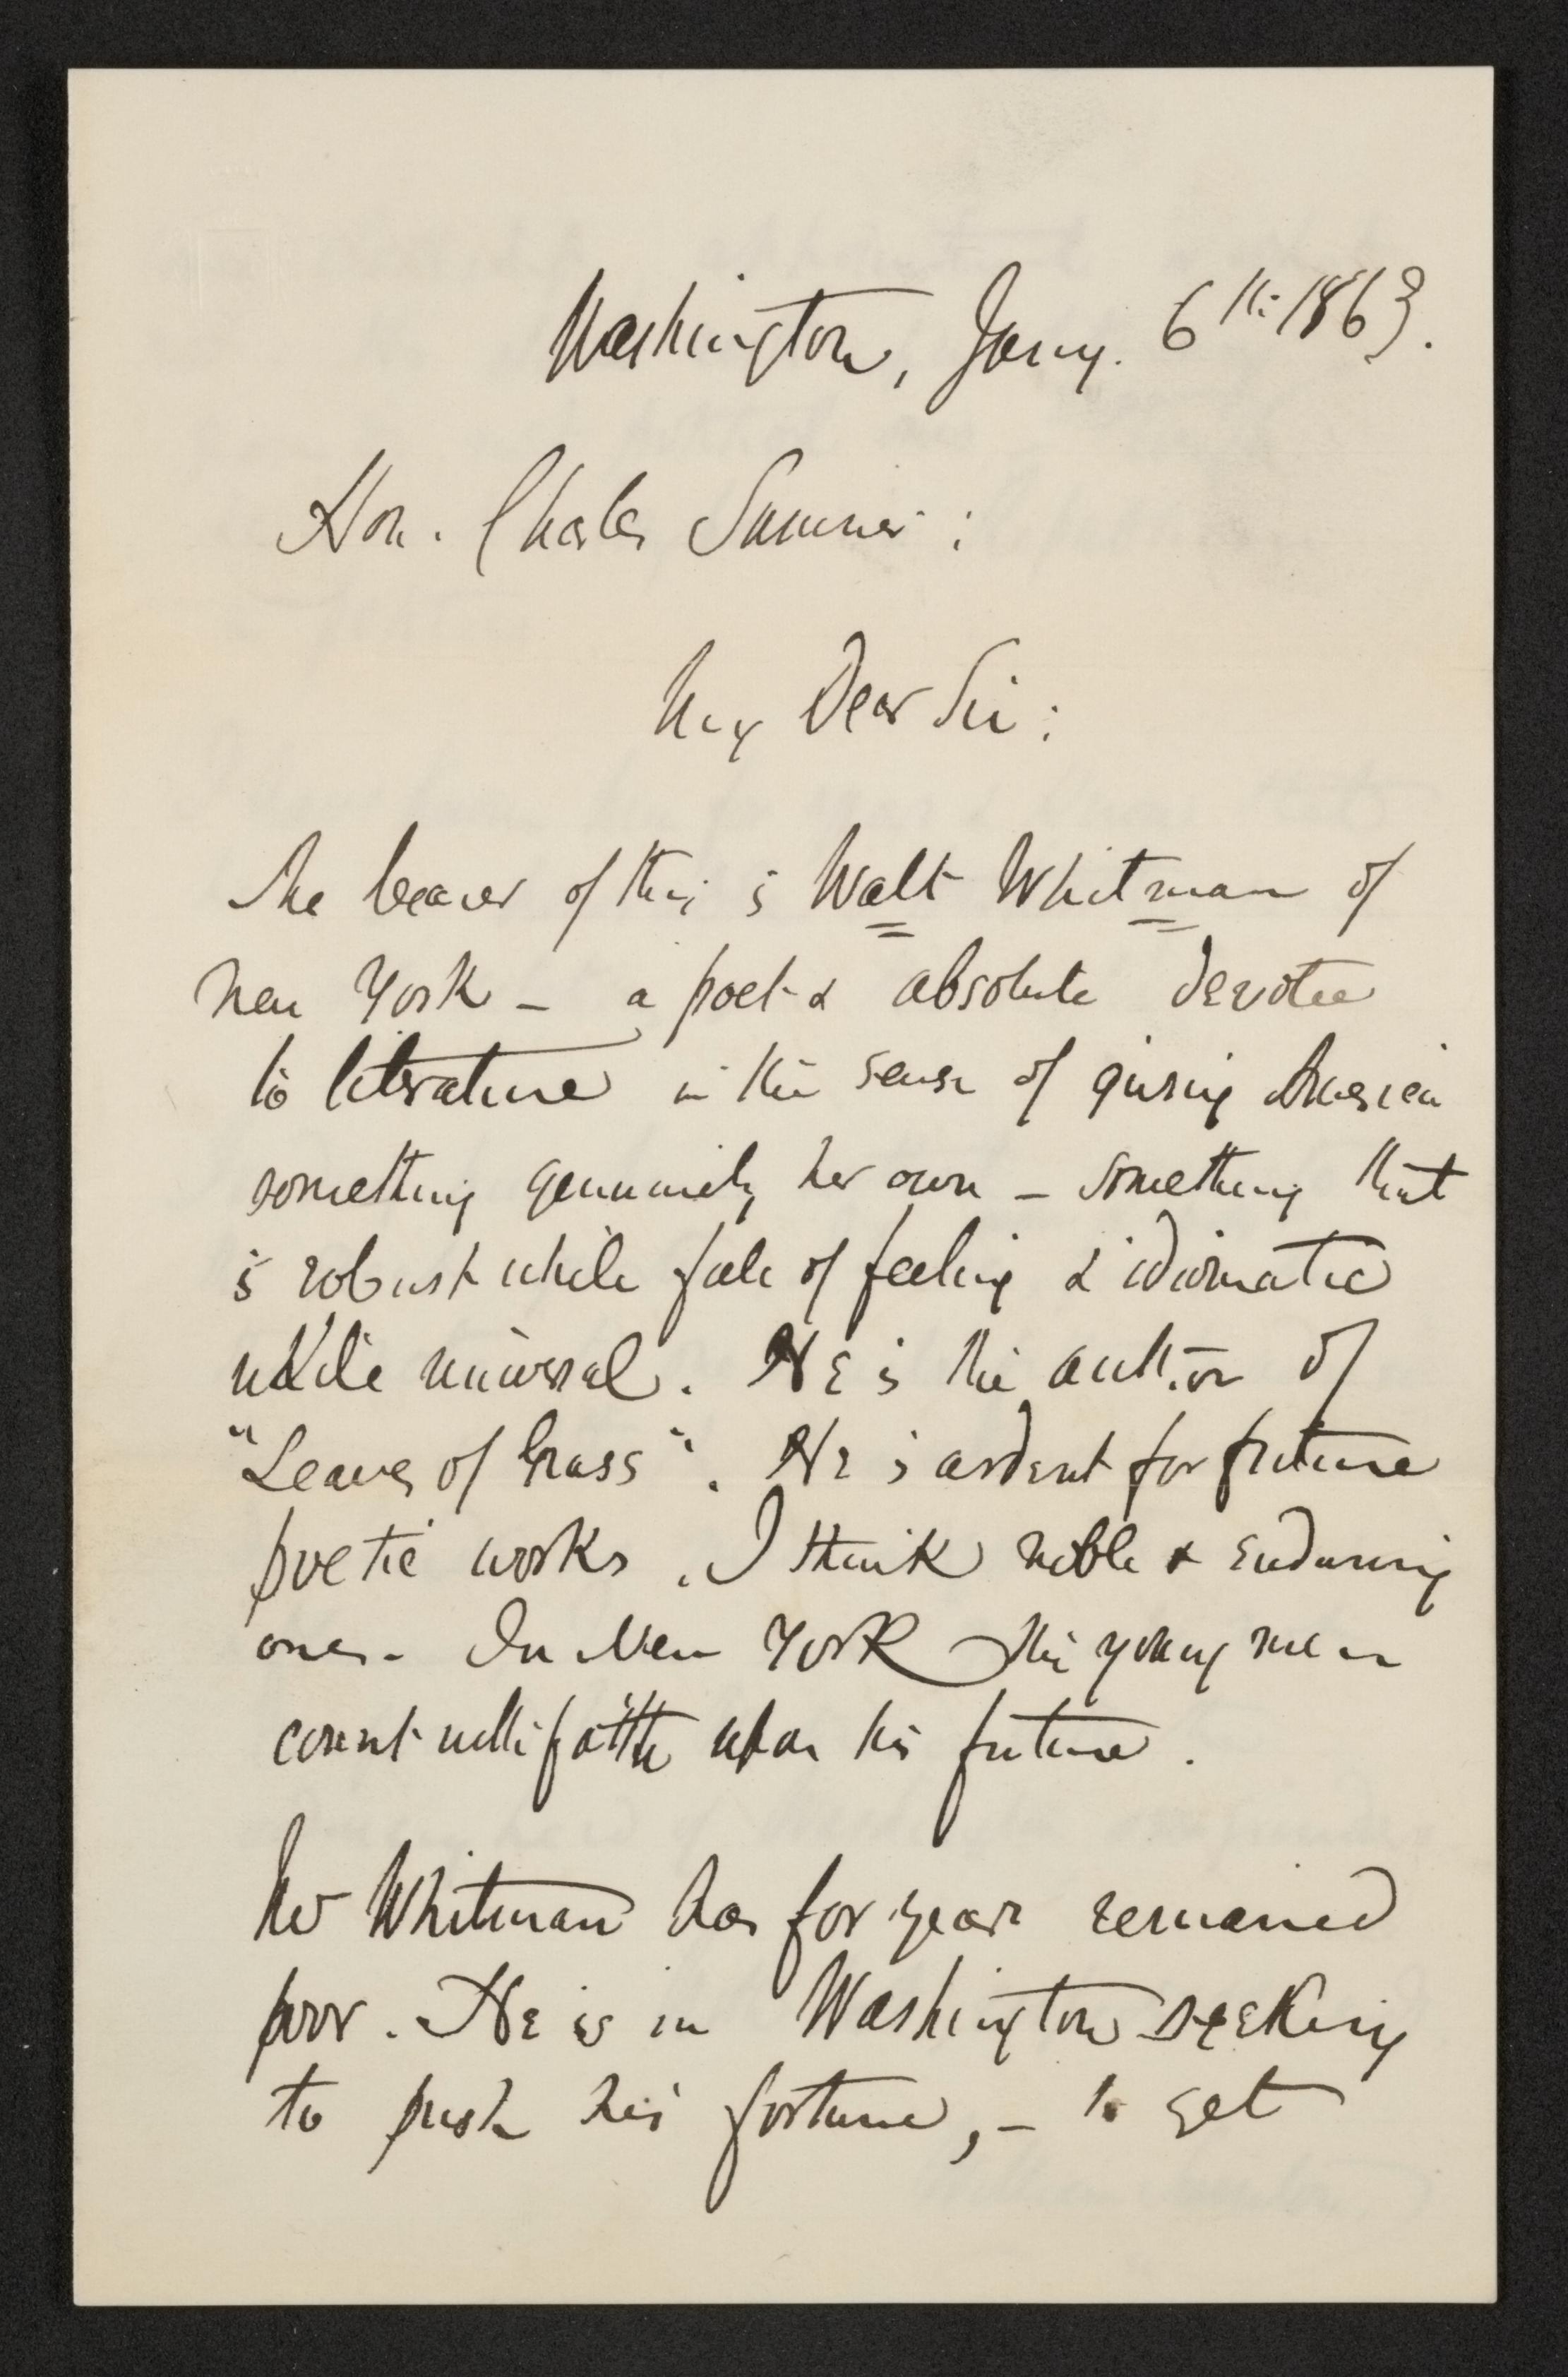 Washington, Jany. 6th 1863.
Hon. Charles Sumner:
My Dear Sir:
The bearer of this is Walt Whitman of
New York — a poet & absolute devotee
to literature in the sense of giving America
something genuinely her own — something that
is robust while full of feeling & idiomatic
while universal. He is the author of
"Leaves of Grass". He is ardent for future
poetic works, I think noble & enduring
ones. In New York the young men
count with faith upon his future.
Mr Whitman has for years remained
poor. He is in Washington seeking
to push his fortune, — to get